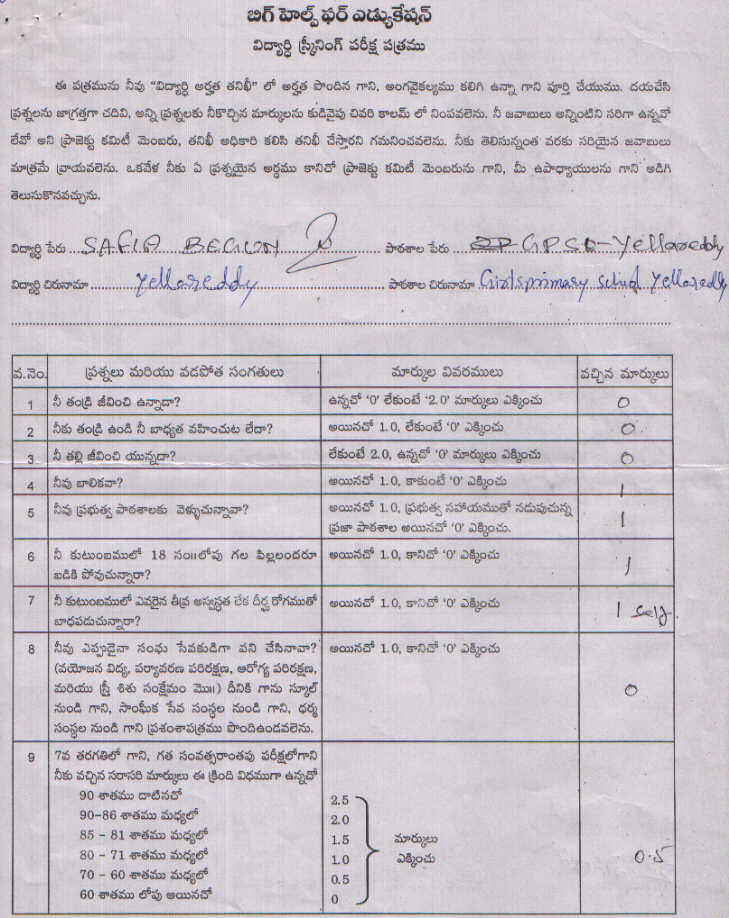 బిగ్ హెల్ప్ ఫర్ ఎడ్యుకేషన్
విద్యార్థి స్క్రీనింగ్ పరీక్ష పత్రము
ఈ పత్రమును నీవు "విద్యార్థి అర్హత తనిఖీ" లో అర్హత పొందిన గాని, అంగవైకల్యము కలిగి ఉన్నా గాని పూర్తి చేయుము. దయచేసి
ప్రశ్నలను జాగ్రత్తగా చదివి, అన్ని ప్రశ్నలకు నీకొచ్చిన మార్కులను కుడివైపు చివరి కాలమ్ లో నింపవలెను. నీ జవాబులు అన్నింటిని సరిగా ఉన్నవో
లేవో అని ప్రాజెక్టు కమిటీ మెంబరు, తనిఖీ అధికారి కలిసి తనిఖీ చేస్తారని గమనించవలెను. నీకు తెలిసున్నంత వరకు సరియైన జవాబులు
మాత్రమే వ్రాయవలెను. ఒకవేళ నీకు ఏ ప్రశ్నయైన అర్థము కానిచో ప్రాజెక్టు కమిటీ మెంబరును గాని, మీ ఉపాధ్యాయులను గాని అడిగి
తెలుసుకొనవచ్చును.
విద్యార్థి పేరు SAFIA BEGUN పాఠశాల పేరు GPSD-Yellareddy
విద్యార్థి చిరునామా Yellareddy పాఠశాల చిరునామా Girlsprimary School Yellareddy
వ.నెం. ప్రశ్నలు మరియు వడపోత సంగతులు మార్కుల వివరములు వచ్చిన మార్కులు
1 నీ తండ్రి జీవించి ఉన్నాడా? ఉన్నచో '0' లేకుంటే '2.0' మార్కులు ఎక్కించు 0
2 నీకు తండ్రి ఉండి నీ బాధ్యత వహించుట లేదా? అయినచో 1.0, లేకుంటే '0' ఎక్కించు 0
3 నీ తల్లి జీవించి యున్నదా? లేకుంటే 2.0, ఉన్నచో '0' మార్కులు ఎక్కించు 0
4 నీవు బాలికవా? అయినచో 1.0, కాకుంటే '0' ఎక్కించు 1
5 నీవు ప్రభుత్వ పాఠశాలకు వెళ్ళుచున్నావా? అయినచో 1.0, ప్రభుత్వ సహాయముతో నడుపుచున్న 1
ప్రజా పాఠశాల అయినచో '0' ఎక్కించు.
6 నీ కుటుంబములో 18 సం॥లోపు గల పిల్లలందరూ అయినచో 1.0, కానిచో '0' ఎక్కించు 1
బడికి పోవుచున్నారా?
7 నీ కుటుంబములో ఎవరైన తీవ్ర అస్వస్థత లేక దీర్ఘ రోగముతో అయినచో 1.0, కానిచో '0' ఎక్కించు 1 self
బాధపడుచున్నారా?
8 నీవు ఎప్పుడైనా సంఘ సేవకుడిగా పని చేసినావా? అయినచో 1.0, కానిచో '0' ఎక్కించు 0
(వయోజన విద్య, పర్యావరణ పరిరక్షణ, ఆరోగ్య పరిరక్షణ,
మరియు స్త్రీ శిశు సంక్షేమం మొ॥) దీనికి గాను స్కూల్
నుండి గాని, సాంఘీక సేవ సంస్థల నుండి గాని, ధర్మ
సంస్థల నుండి గాని ప్రశంశాపత్రము పొందిఉండవలెను.
9 7వ తరగతిలో గాని, గత సంవత్సరాంతపు పరీక్షలోగాని
నీకు వచ్చిన సరాసరి మార్కులు ఈ క్రింది విధముగా ఉన్నచో
90 శాతము దాటినచో 2.5
90-86 శాతము మధ్యలో 2.0
85 - 81 శాతము మధ్యలో 1.5 మార్కులు
80 - 71 శాతము మధ్యలో 1.0 ఎక్కించు 0.5
70 - 60 శాతము మధ్యలో 0.5
60 శాతము లోపు అయినచో 0